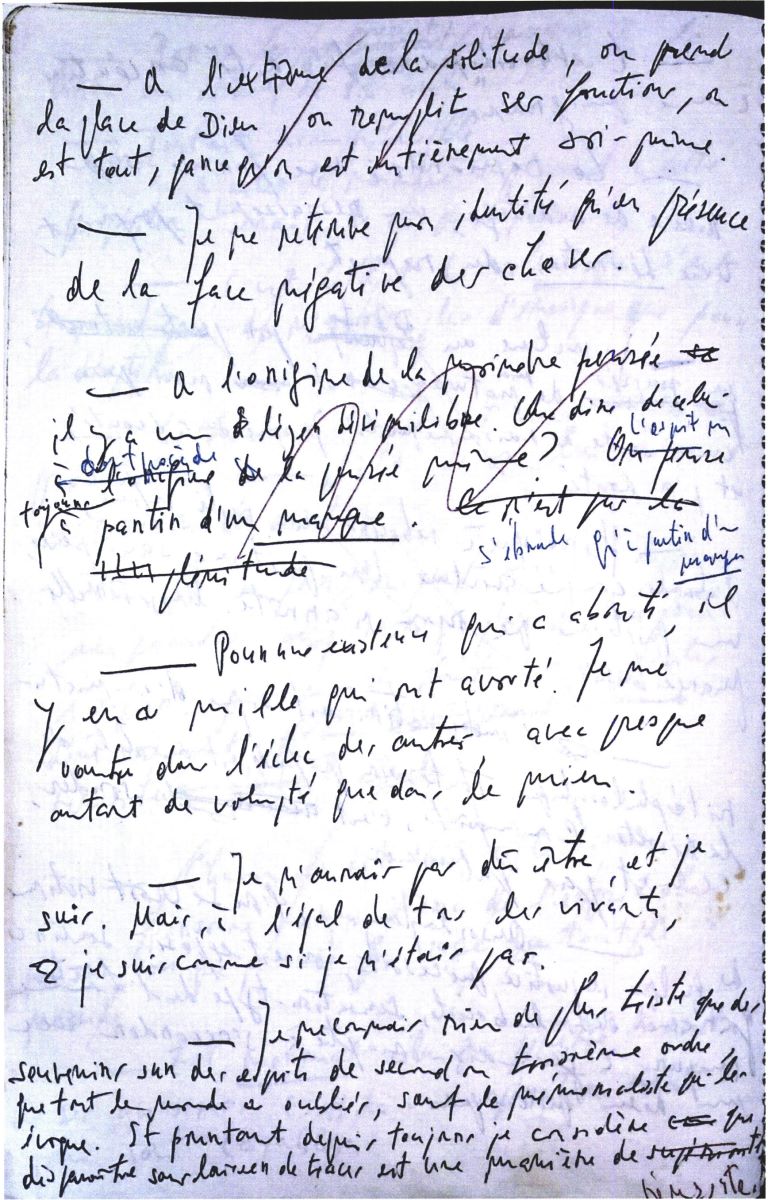 — A l'extrême de la solitude, on prend
la place de Dieu, on remplit ses fonctions, on
est tout, parce qu'on est entièrement soi-même.
— Je ne retrouve mon identité qu'en présence
de la face négative des choses.
— A l'origine de la moindre pensée
il y a un léger déséquilibre. Que dire de celui
à dont procède
l'origine de la pensée même? On pense
l'esprit ne
toujours à
partir d'un manque. Ce n'est pas la
s'ébranle qu'à partir d'un
manque
finitude
— Pour une existence qui a abouti, il
y en a mille qui ont avorté. Je me
vautre dans l'échec des autres, avec presque
autant de volupté que dans le mien.
— Je n'aurais pas dû être, et je
suis. Mais, à l'égal de tous les vivants,
je suis comme si je n'étais pas.
— Je ne connais rien de plus triste que des
souvenirs sur des esprits de second ou troisième ordre,
que tout le monde a oubliés, sauf le mémorialiste qui les
évoque. Et pourtant depuis toujours je considère que
disparaître sans laisser de traces est une manière de